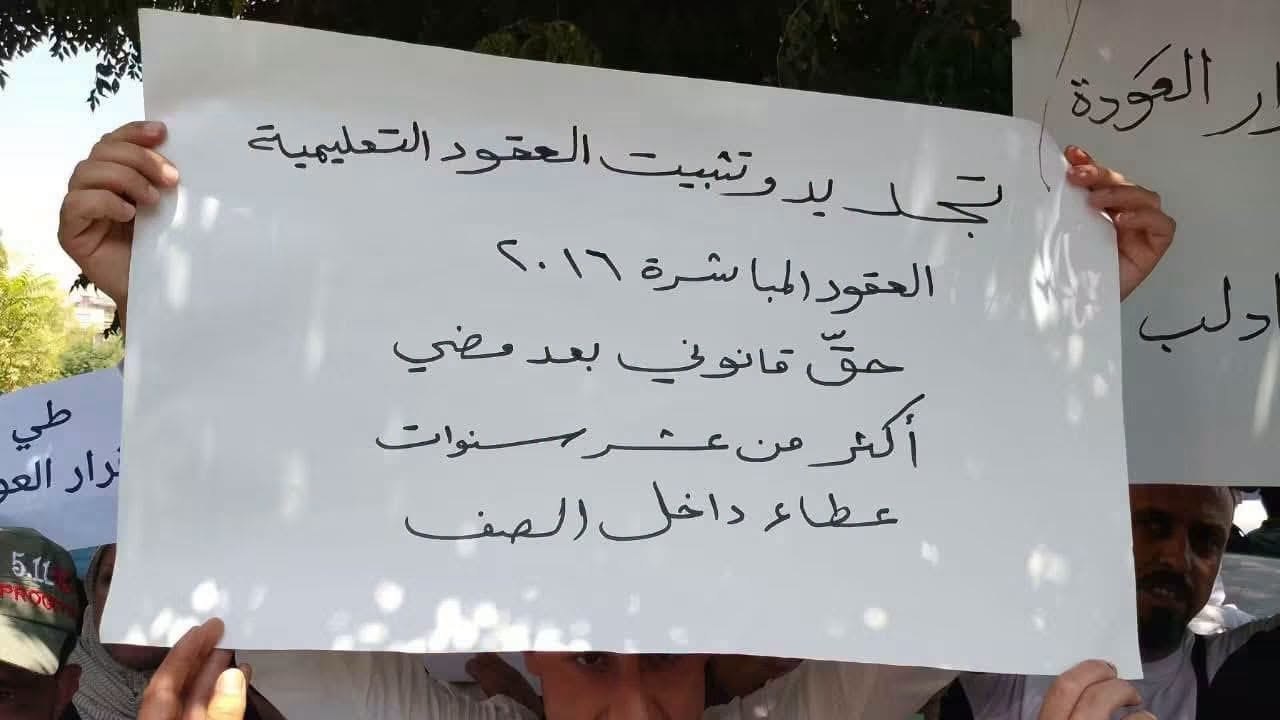 تجديد وتثبيت العقود التعليمية
العقود المباشرة ٢٠١٦
حقّ قانوني بعد مضي
أكثر من عشر سنوات
عطاء داخل الصف
العودة
ادلب
طي
5.11